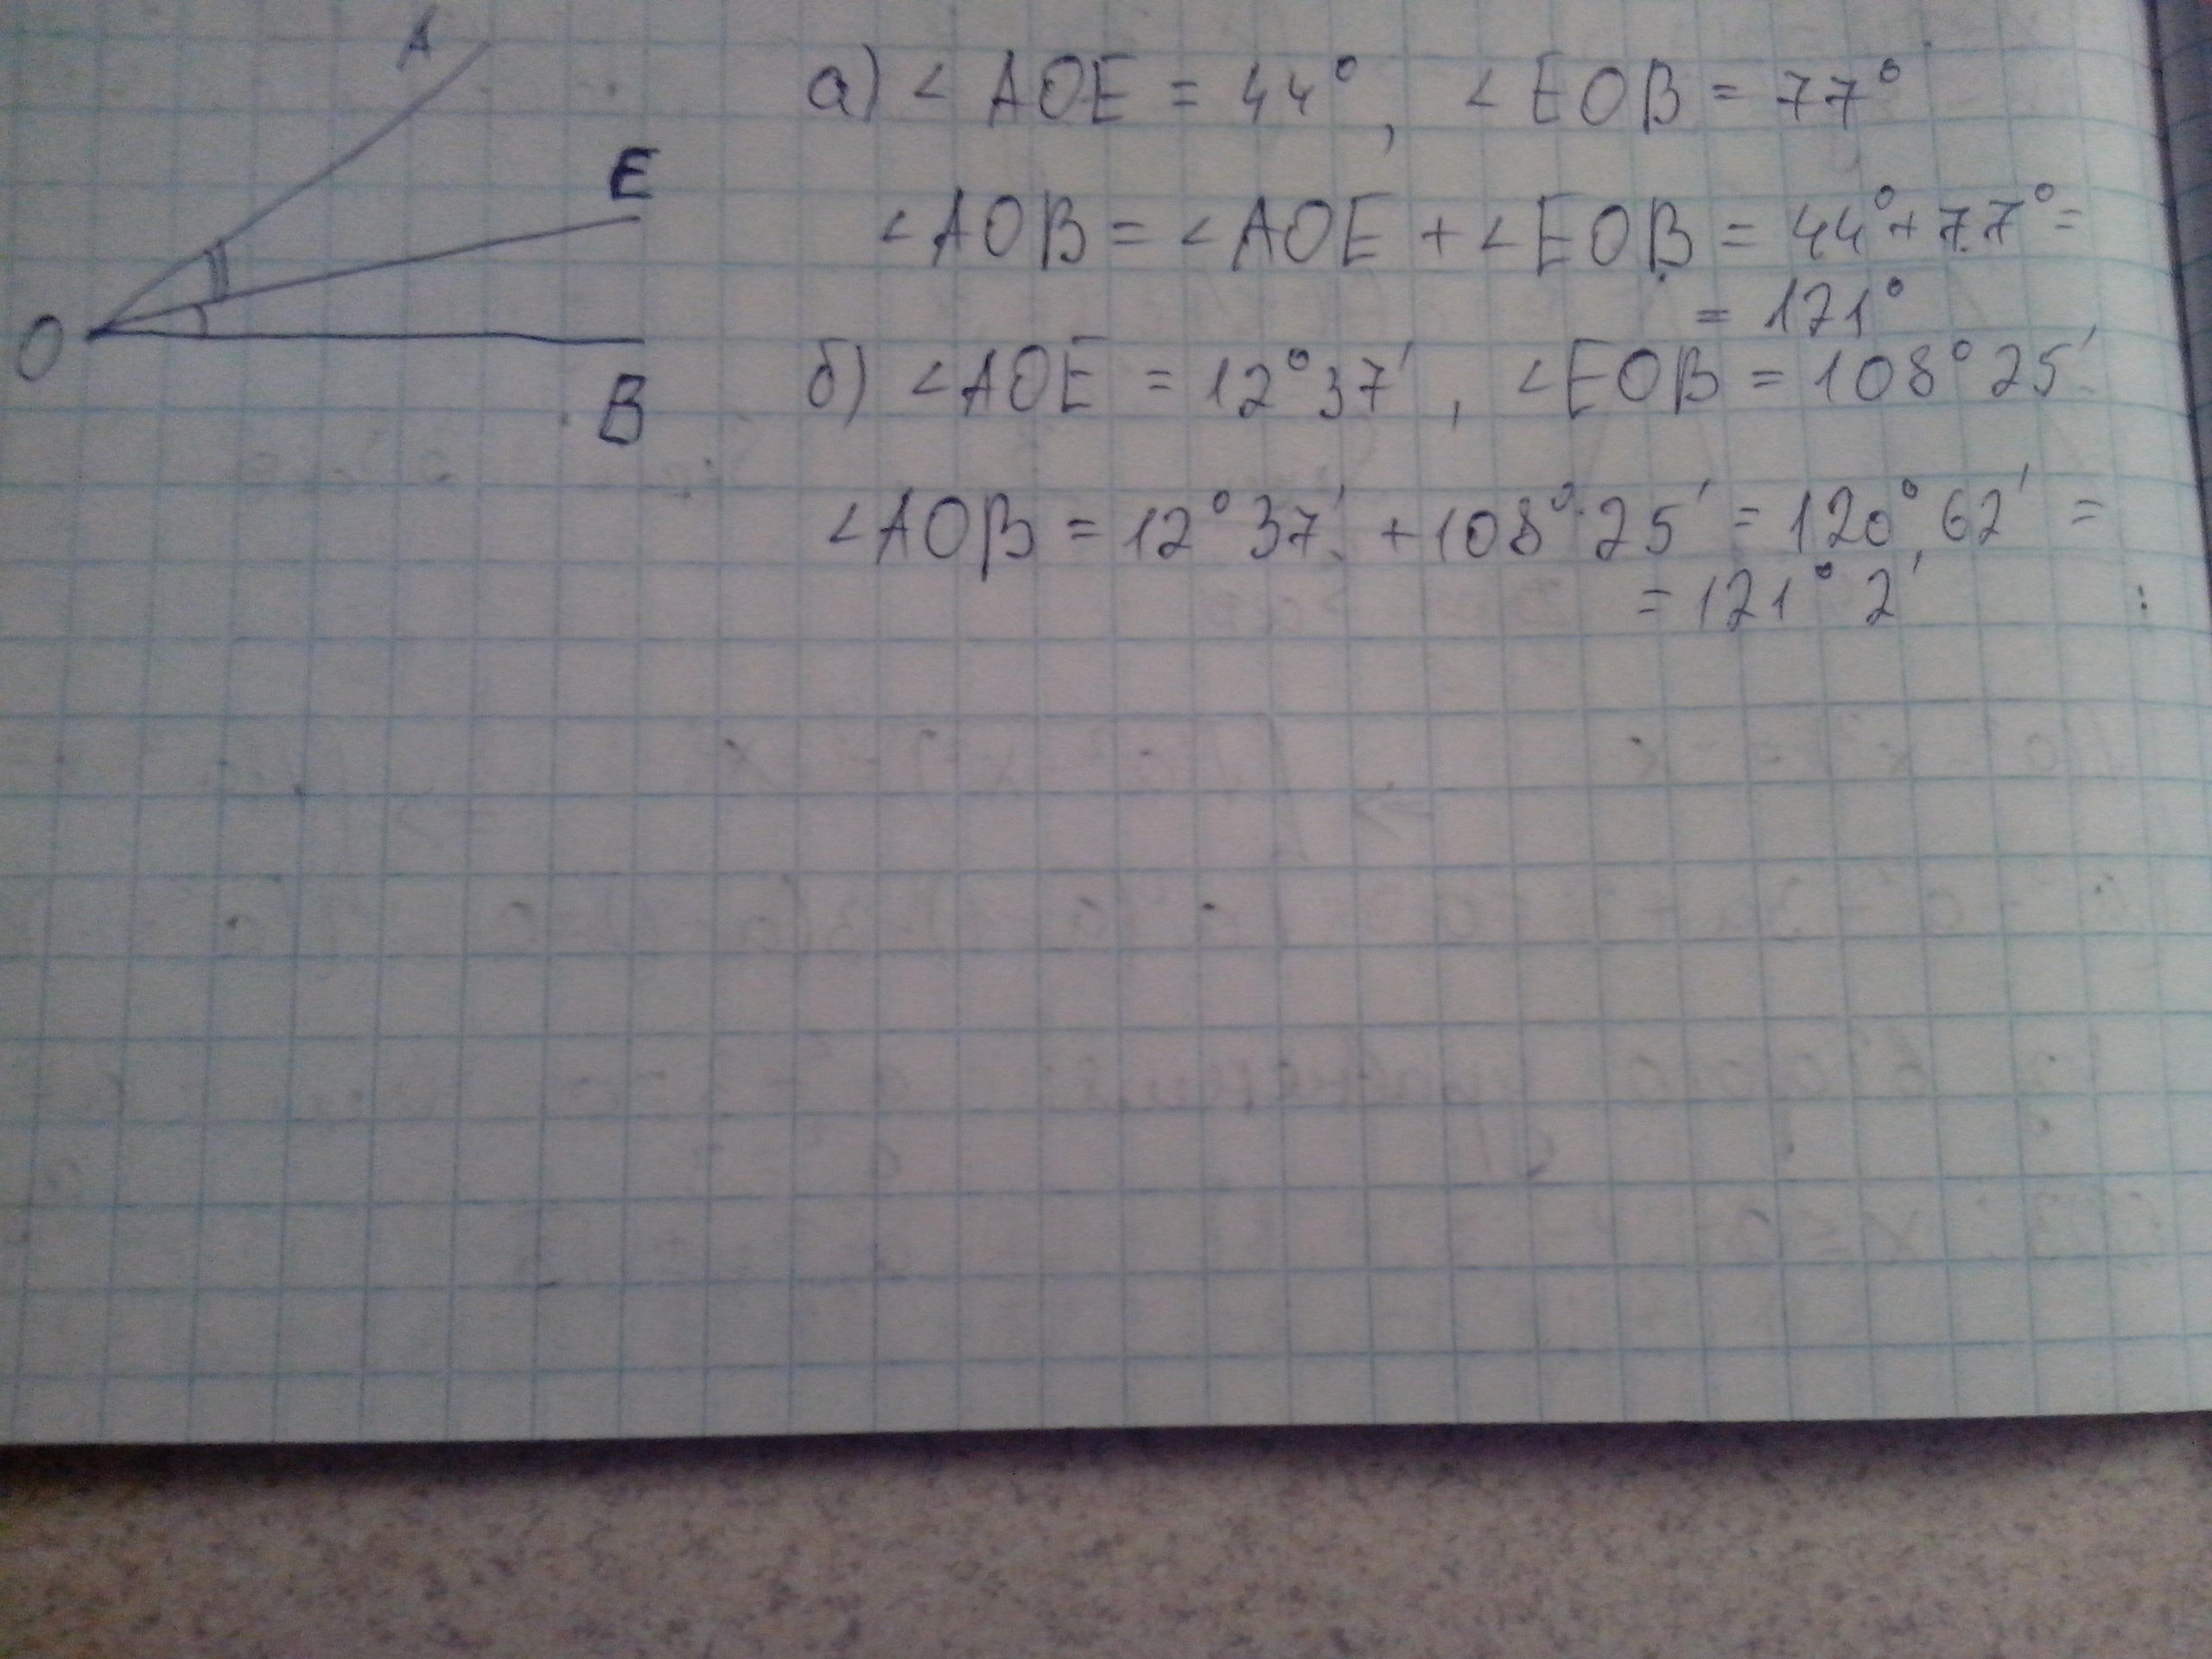 A
E
O
B
а) ∠AOE = 44°, ∠EOB = 77°
∠AOB = ∠AOE + ∠EOB = 44° + 77° =
= 121°
б) ∠AOE = 12°37', ∠EOB = 108°25'
∠AOB = 12°37' + 108°25' = 120°62' =
= 121°2'